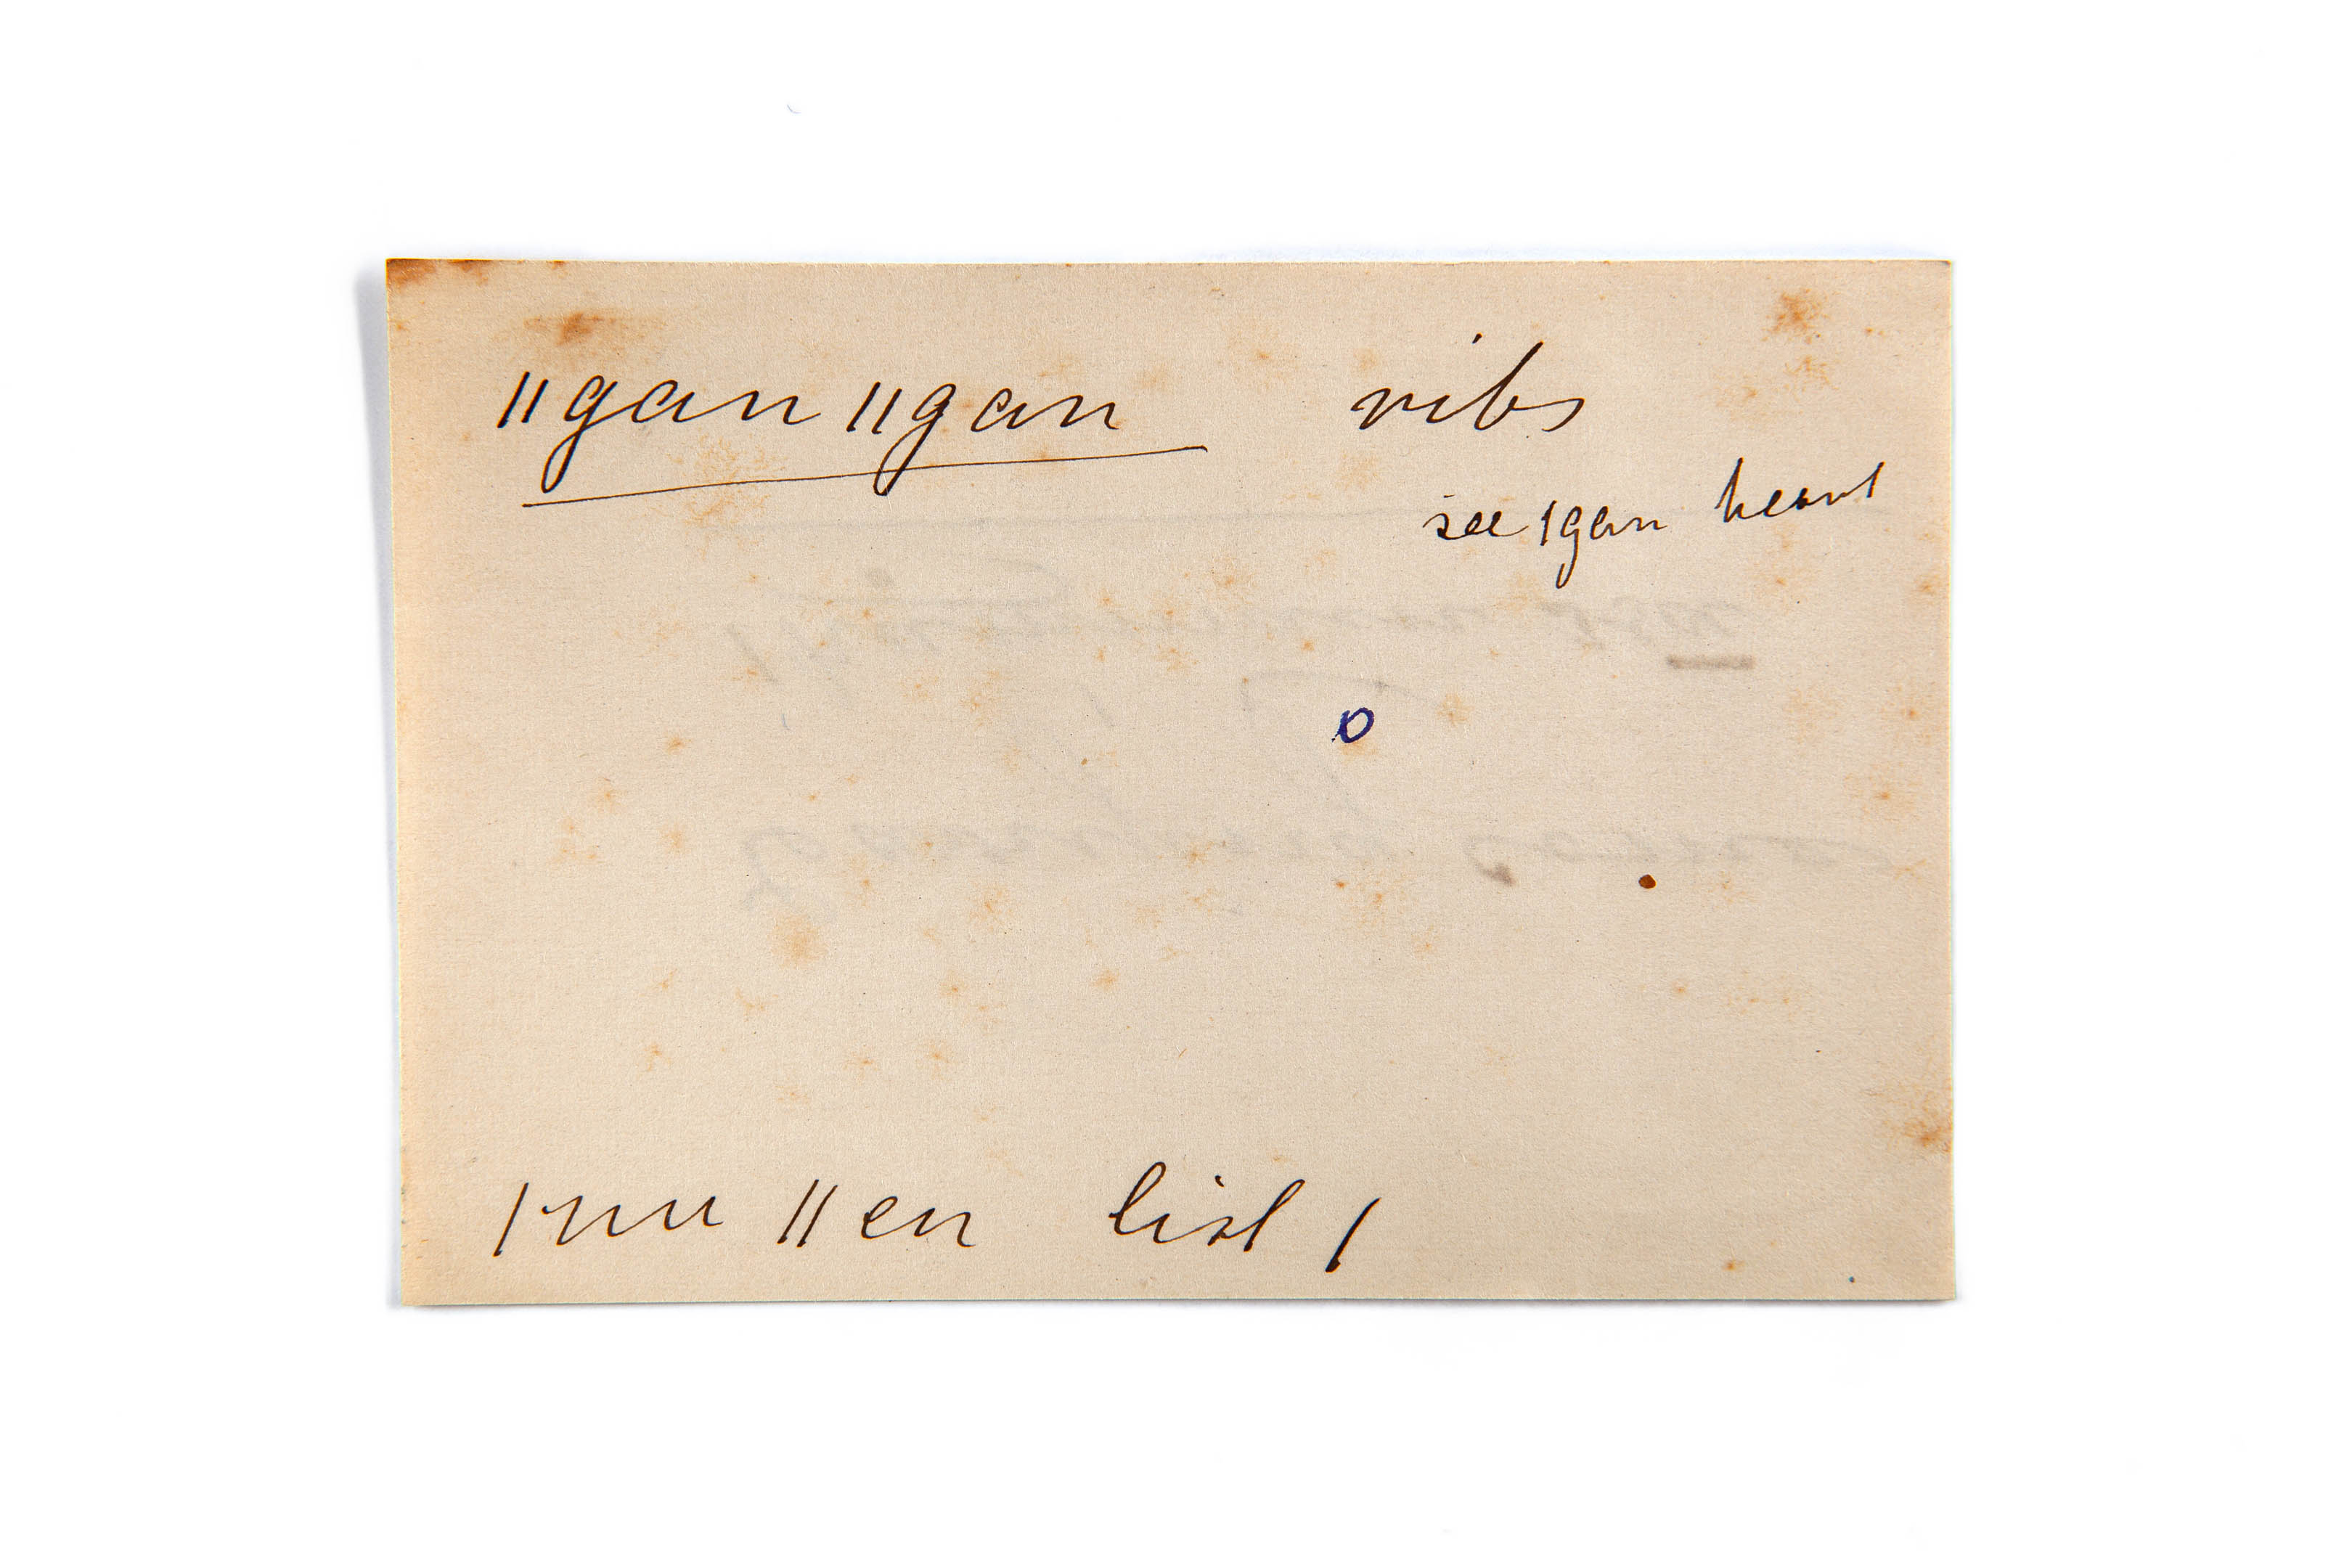 ||gan ||gan ribs
see |gan heart
o
|nu ||en list |